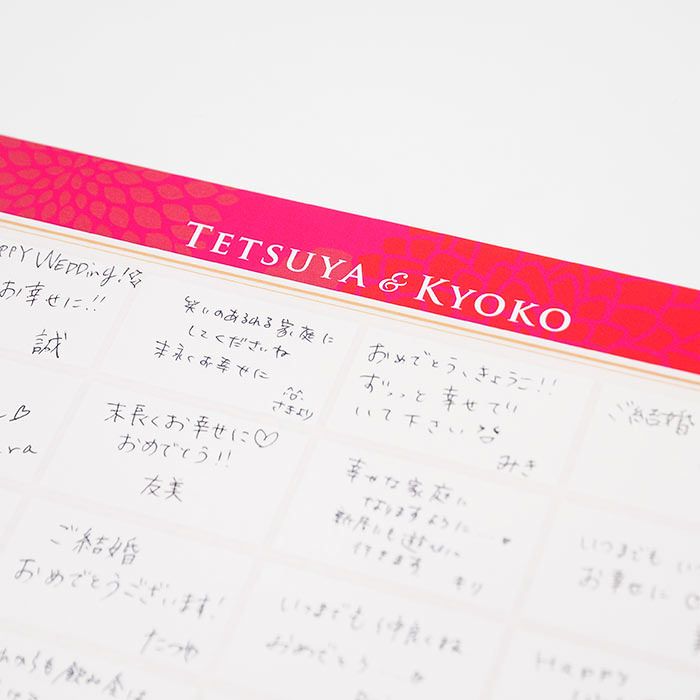 TETSUYA & KYOKO
PPY WEDDing!
お幸せに!!
誠
笑いのあふれる家庭に
してくださいね
末永くお幸せに
さおより
おめでとう、きょうこ!!
ずっっと幸せでい
て下さい
みき
ご結婚
ra
末長くお幸せに♡
おめでとう!!
友美
幸せな家庭に
なりますように……♥
新居にも遊びに
行きます
いつまでも
お幸せに♡
ご結婚
おめでとうございます!
たつや
いつまでも仲良くね
おめでとう……
Happy
も飲み会は